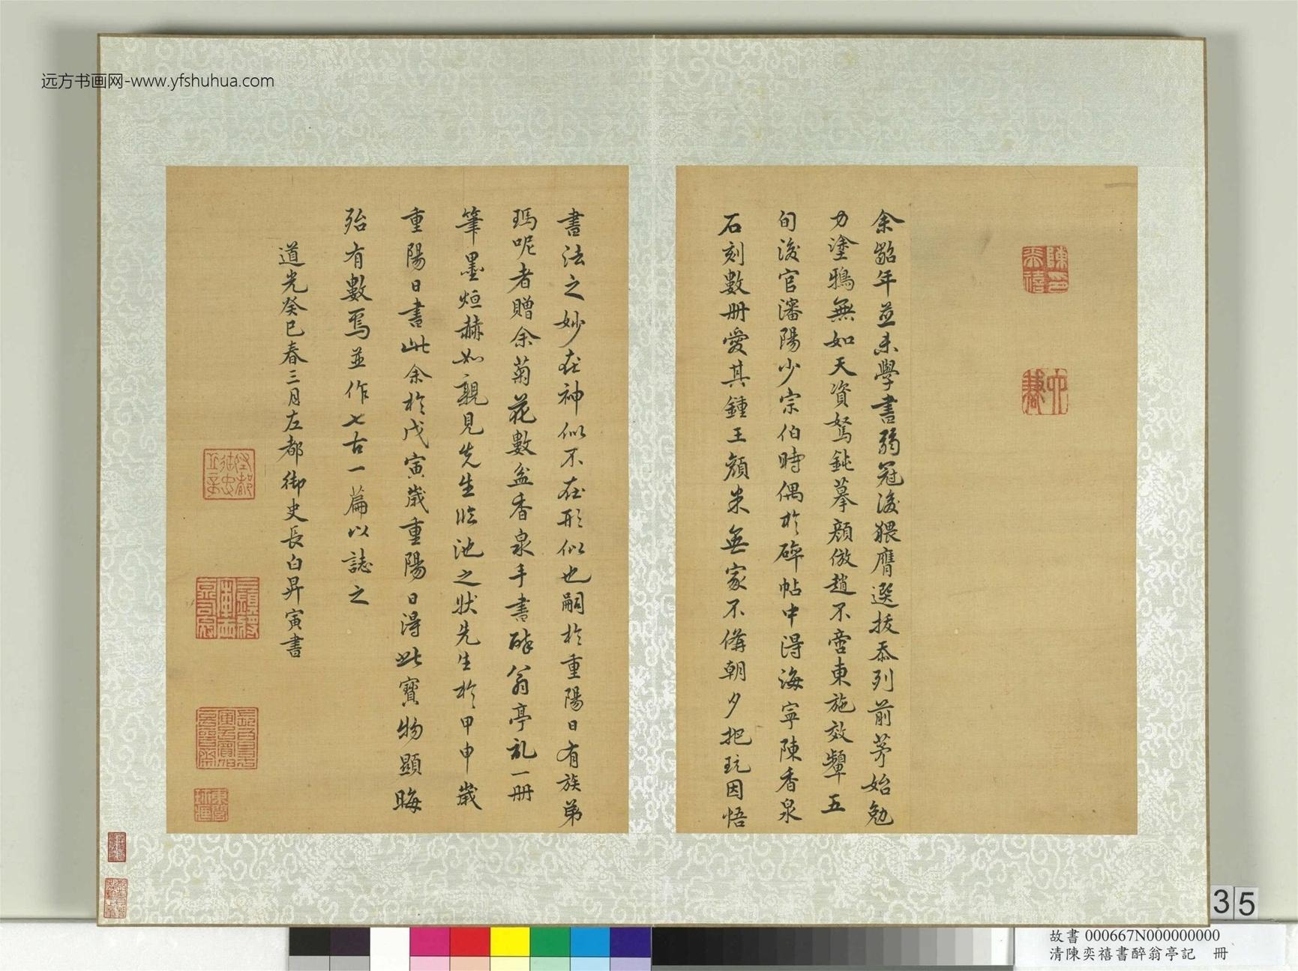 远方书画网-www.yfshuhua.com
陳奕禧印
余齠年並未學書弱冠後猥膺選拔忝列前茅始勉
力塗鴉無如天資駑鈍摹顏倣趙不啻東施效顰五
旬後官瀋陽少宗伯時偶於碑帖中得海寧陳香泉
石刻數册愛其鍾王顏米無家不備朝夕把玩因悟
書法之妙在神似不在形似也嗣於重陽日有族弟
瑪呢者贈余菊花數盆香泉手書醉翁亭記一册
筆墨烜赫如親見先生臨池之狀先生於甲申歲
重陽日書此余於戊寅歲重陽日得此寶物顯晦
殆有數焉並作七古一篇以誌之
道光癸巳春三月左都御史長白昇寅書
35
故書 000667N000000000
清陳奕禧書醉翁亭記 冊